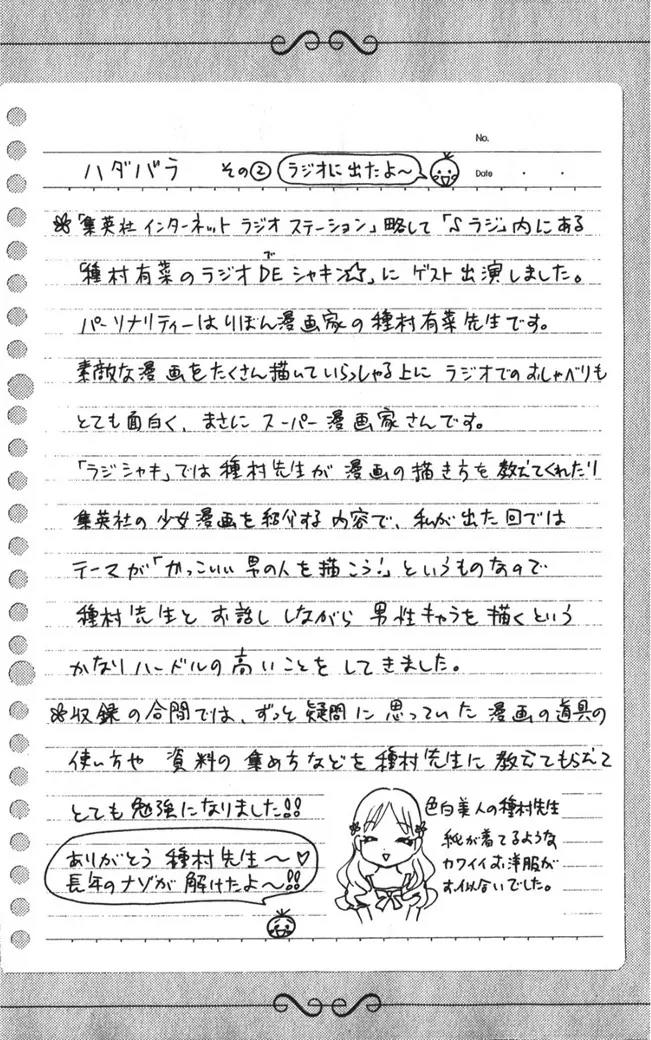 No.
ハダバラ その② ラジオに出たよ～
Date ・ ・
「集英社インターネット ラジオ ステーション」略して「♪ラジ」内にある
「種村有菜のラジオDEシャキン☆」に ゲスト出演しました。
で
パーソナリティーはりぼん漫画家の種村有菜先生です。
素敵な漫画をたくさん描いていらっしゃる上に ラジオでのおしゃべりも
とても面白く、まさに スーパー漫画家さんです。
「ラジシャキ」では種村先生が 漫画の描き方を教えてくれたり
集英社の少女漫画を紹介する内容で、私が出た回では
テーマが「かっこいい男の人を描こう!」というものなので
種村先生とお話ししながら 男性キャラを描くという
かなりハードルの高いことをしてきました。
収録の合間では、ずっと疑問に思っていた漫画の道具の
使い方や 資料の集め方などを種村先生に教えてもらえて
とても勉強になりました!!
ありがとう 種村先生～♡
長年のナゾが解けたよ～!!
色白美人の種村先生
紀が着てるような
カワイイお洋服が
お似合いでした。